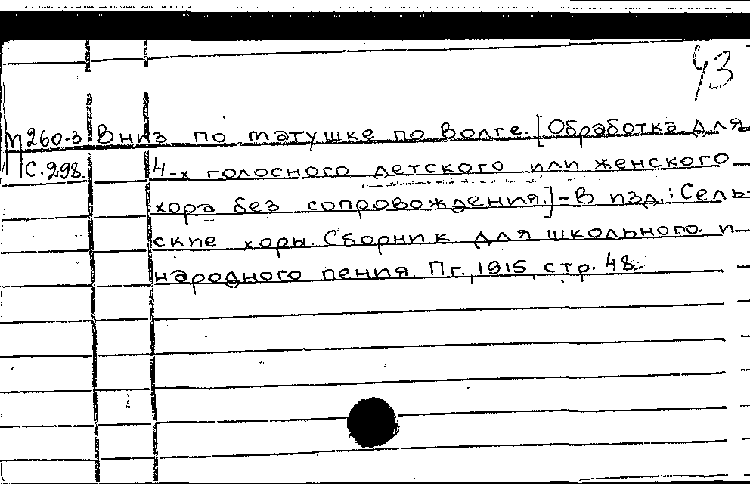 43
М260-3 Вниз по матушке по Волге. [Обработка для
С.298. 4-х голосного детского или женского
хора без сопровождения.]-В изд.: Сель-
ские хоры. Сборник для школьного и
народного пения. Пг., 1915, стр. 48.